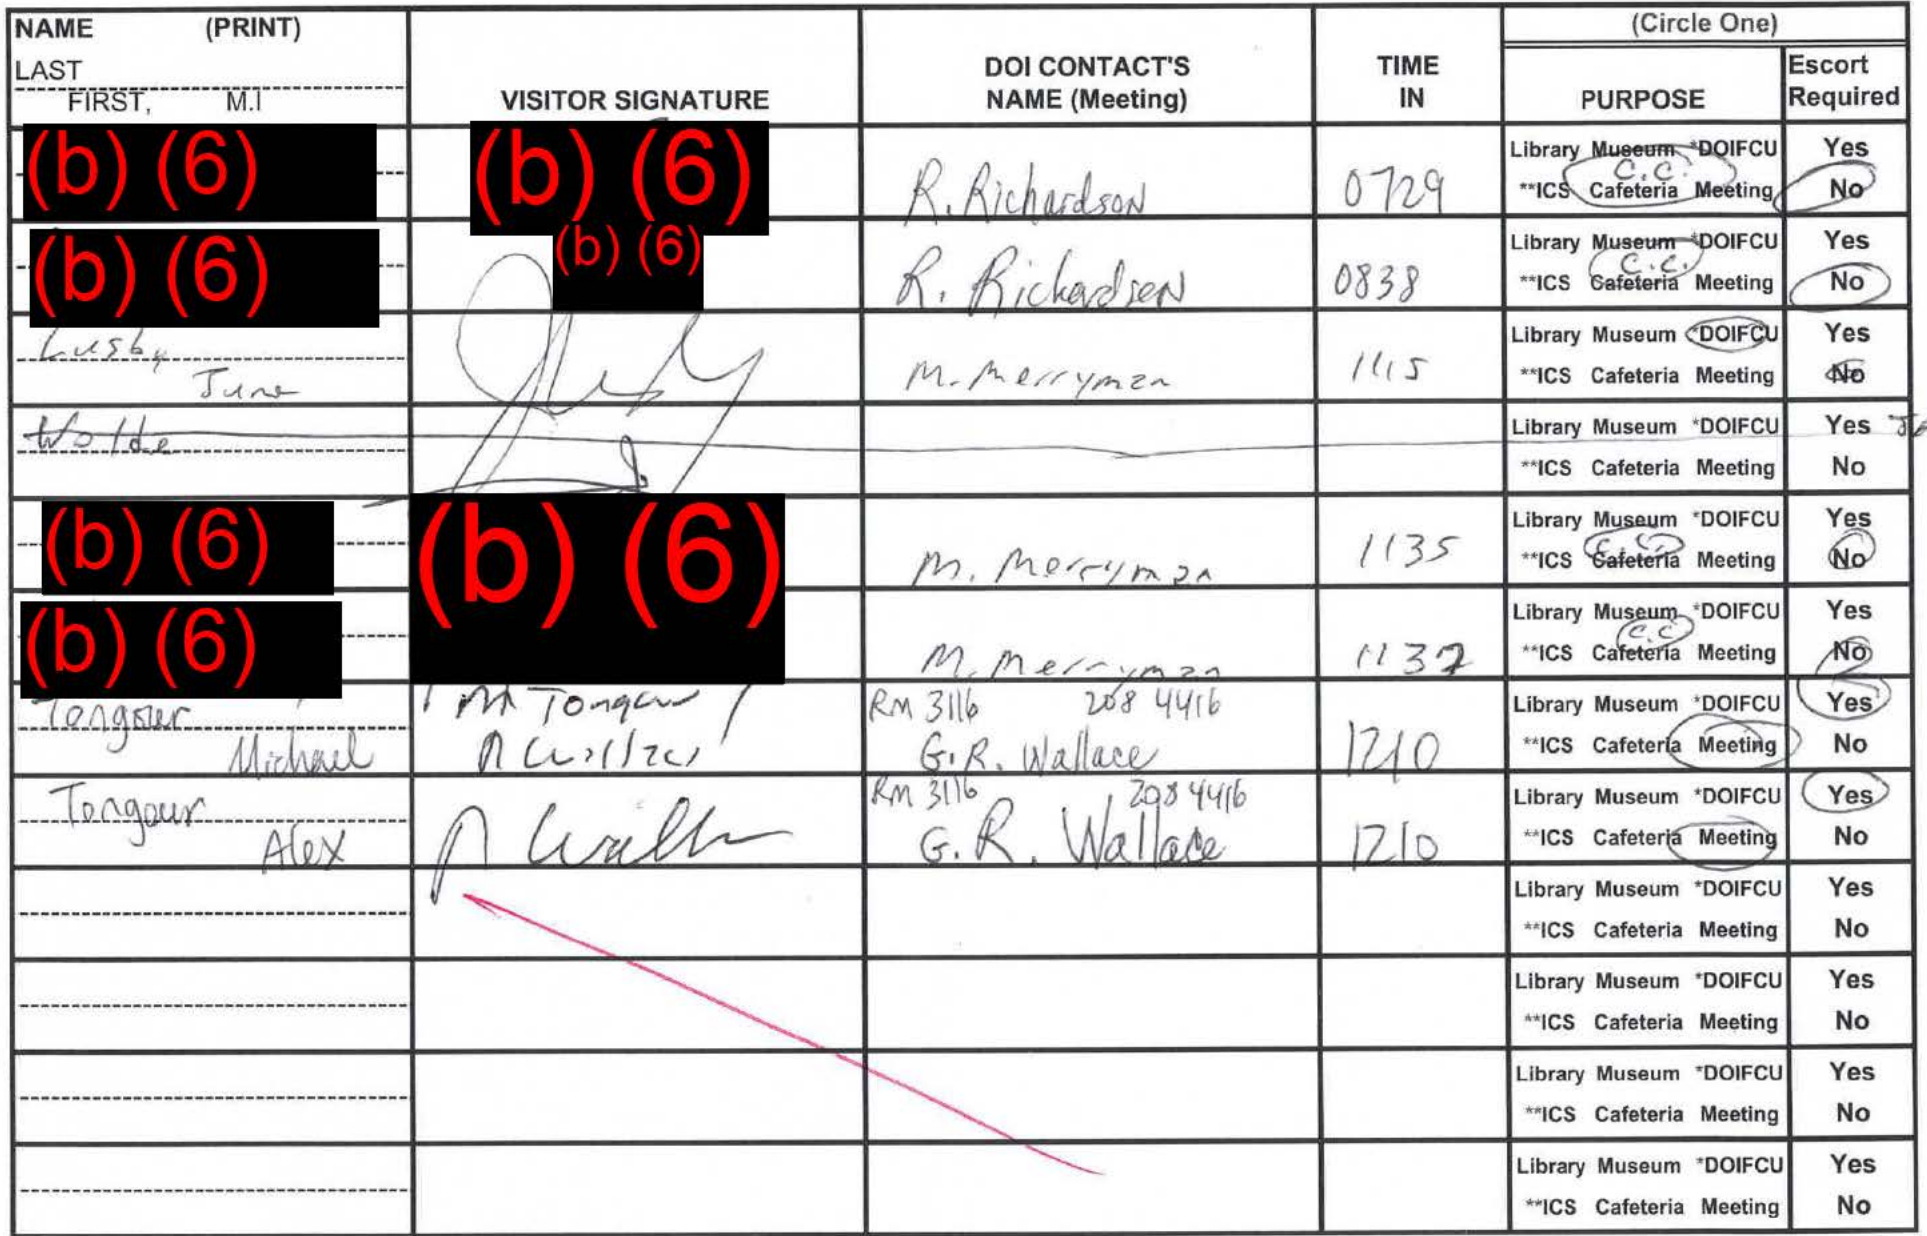 NAME (PRINT)
LAST
FIRST, M.I
VISITOR SIGNATURE
DOI CONTACT'S
NAME (Meeting)
TIME
IN
(Circle One)
PURPOSE
Escort
Required
(b) (6)
(b) (6)
R. Richardson
0729
Library Museum *DOIFCU
C.C.
**ICS Cafeteria Meeting
Yes
No
(b) (6)
(b) (6)
R. Richardson
0838
Library Museum *DOIFCU
C.C.
**ICS Cafeteria Meeting
Yes
No
Lusby
June
M. Merryman
1115
Library Museum *DOIFCU
**ICS Cafeteria Meeting
Yes
No
Wolde
Library Museum *DOIFCU
**ICS Cafeteria Meeting
Yes
No
(b) (6)
(b) (6)
M. Merryman
1135
Library Museum *DOIFCU
C.C.
**ICS Cafeteria Meeting
Yes
No
(b) (6)
M. Merryman
1137
Library Museum *DOIFCU
C.C
**ICS Cafeteria Meeting
Yes
No
Tongour
Michael
M Tongour
RM 3116 208 4416
G.R. Wallace
1210
Library Museum *DOIFCU
**ICS Cafeteria Meeting
Yes
No
Tongour
Alex
RM 3116 208 4416
G.R. Wallace
1210
Library Museum *DOIFCU
**ICS Cafeteria Meeting
Yes
No
Library Museum *DOIFCU
**ICS Cafeteria Meeting
Yes
No
Library Museum *DOIFCU
**ICS Cafeteria Meeting
Yes
No
Library Museum *DOIFCU
**ICS Cafeteria Meeting
Yes
No
Library Museum *DOIFCU
**ICS Cafeteria Meeting
Yes
No